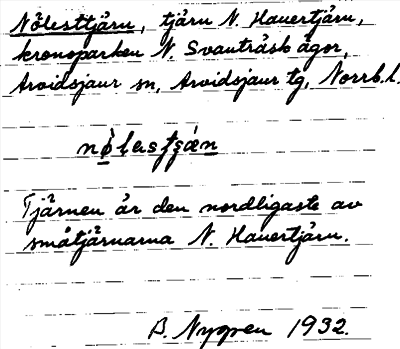 Nölesttjärn, tjärn N. Hauertjärn,
kronoparken N. Svanträsk ägor,
Arvidsjaur sn, Arvidsjaur tg, Norrb. l.
Tjärnen är den nordligaste av
småtjärnarna N. Hauertjärn.
B. Nygren 1932.